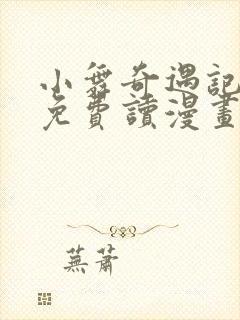 小舞奇遇記
免費讀漫畫
蕪蕭